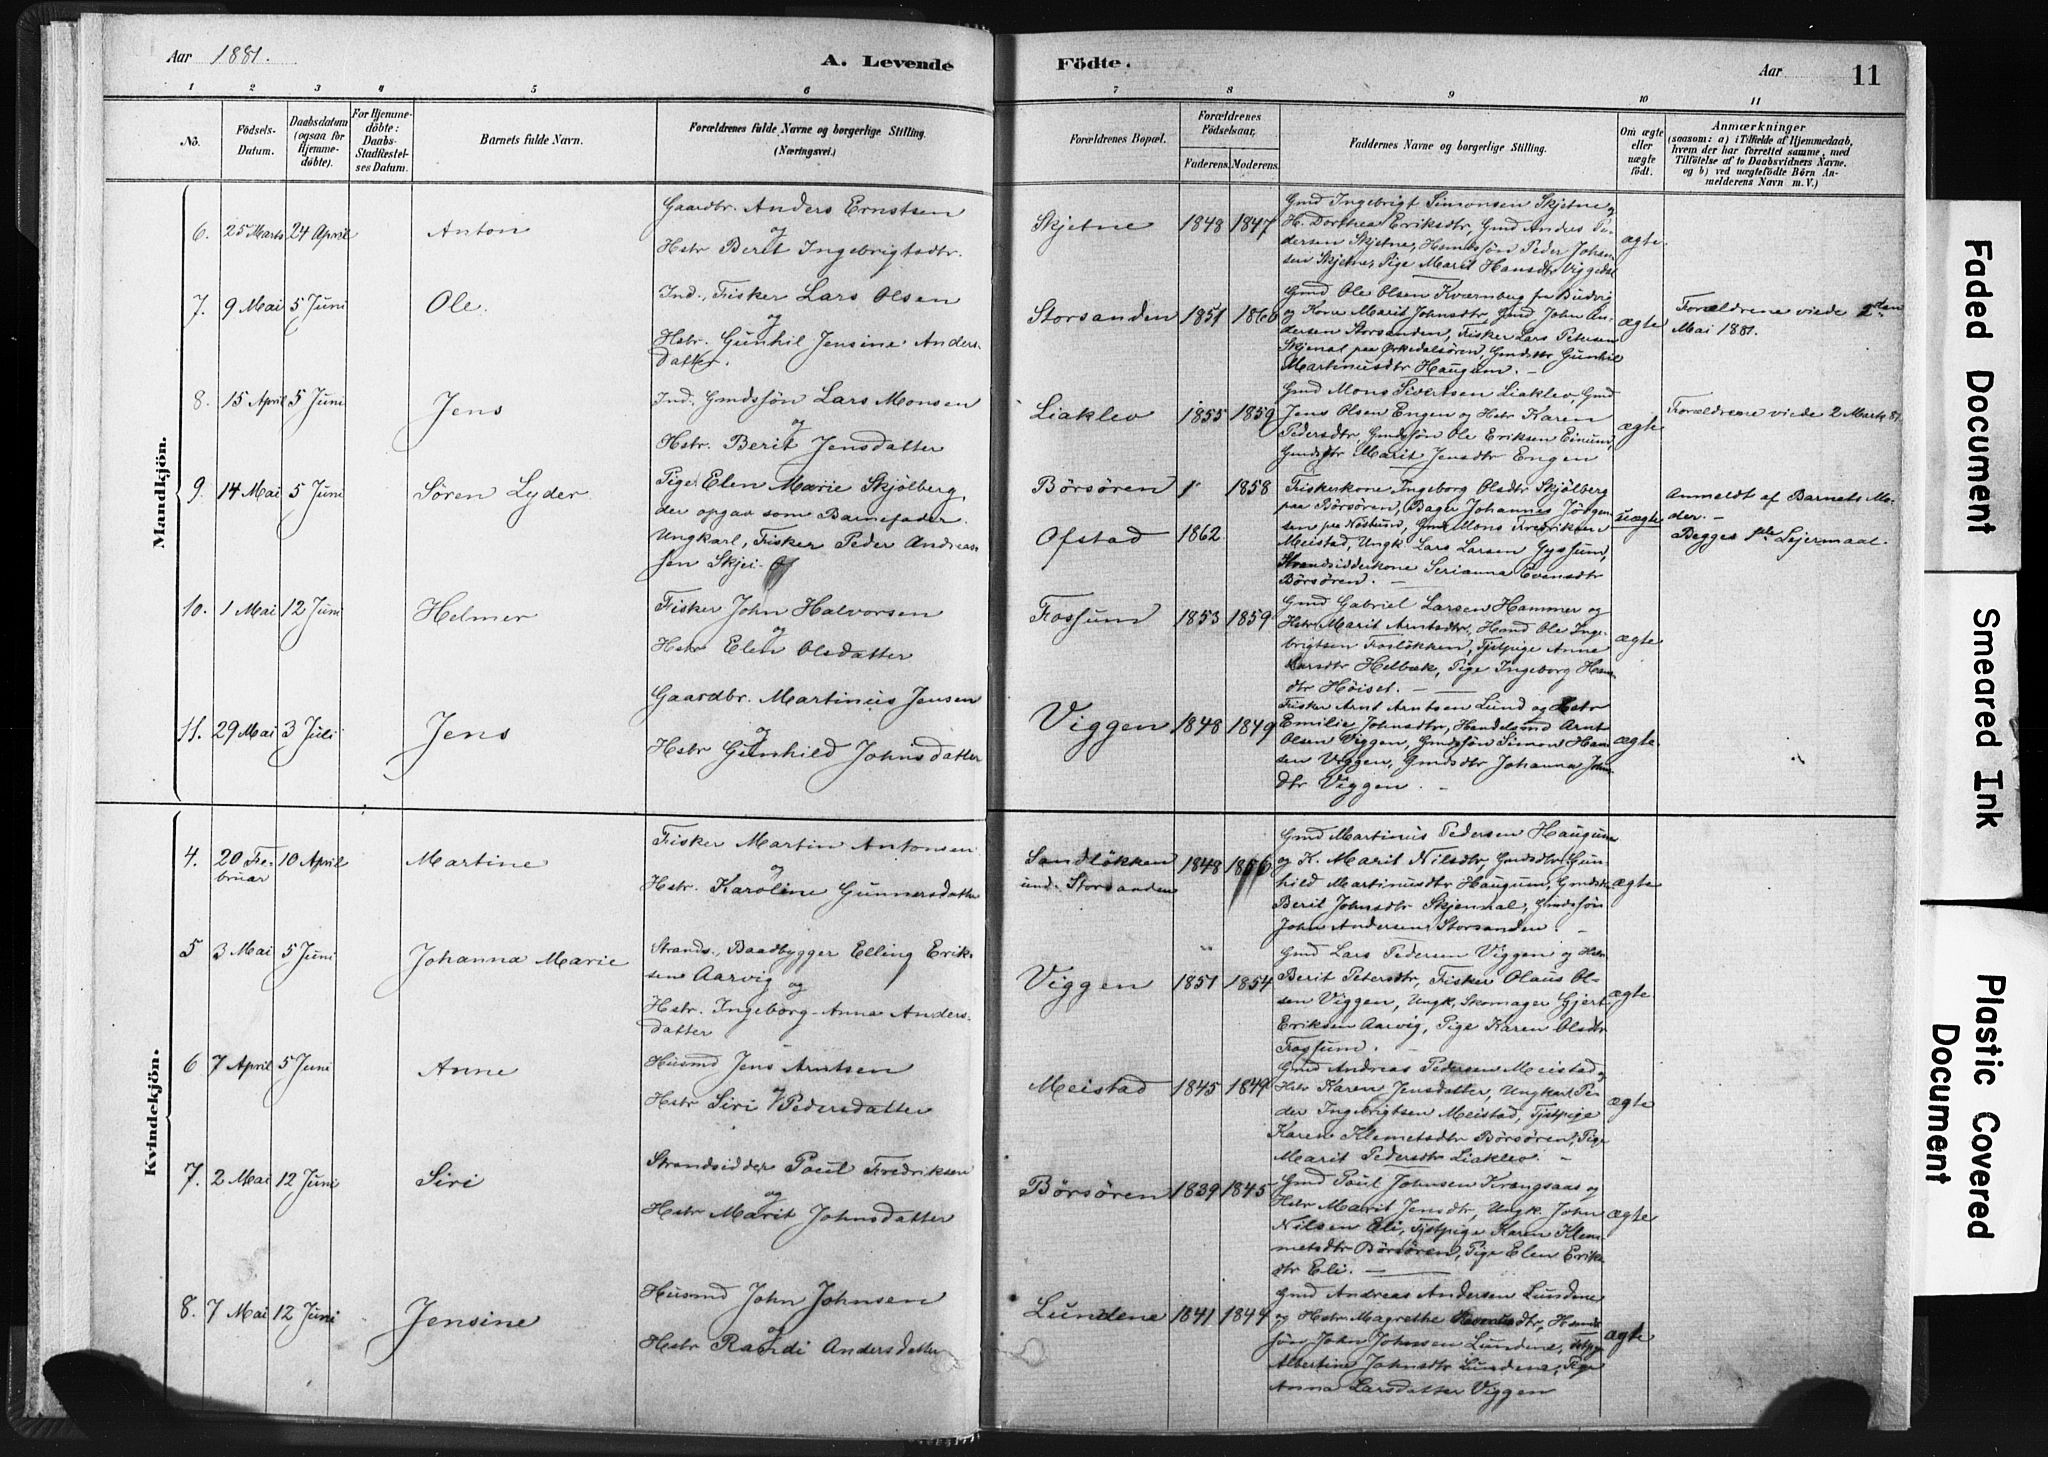 Aar 1881.
A. Levende
Födte.
Aar
11
1 2 3 4 5 6 7 8 9 10 11
No.
Födsels-
Datum.
Daabsdatum
(ogsaa for
Hjemme-
döbte).
For Hjemme-
döbte:
Daabs-
Stadfæstel-
ses Datum.
Barnets fulde Navn.
Forældrenes fulde Navne og borgerlige Stilling.
(Næringsvei.)
Forældrenes Bopæl.
Forældrenes
Födselsaar.
Faderens. Moderens.
Faddernes Navne og borgerlige Stilling.
Om ægte
eller
uægte
födt.
Anmærkninger
(saasom: a) i Tilfælde af Hjemmedaab,
hvem der har forrettet samme, med
Tilföielse af to Daabsvidners Navne.
og b) ved uægtefödte Börn An-
melderens Navn m. V.)
Mandkjön.
6. 25 Marts 24 April Anton
Gaardbr. Anders Ernstsen
og
Hstr Berit Ingebrigtsdtr.
Skjetne 1848 1847
Gmd Ingebrigt Simonsen Skjetne og
H. Dorthea Eriksdtr, Gmd Anders Pe-
dersen Skjetne, Hsmdssön Peder Johan-
sen Skjetne, Pige Marit Hansdtr Viggedal
ægte.
7. 9 Mai 5 Juni Ole
Ind., Fisker Lars Olsen
og
Hstr. Gunhil Jensine Anders-
datter.
Storsanden 1851 1860
Gmd Ole Olsen Kværnberg fra Budvig
og Kone Marit Johnsdtr, Gmd John An-
dersen Storsanden, Fisker Lars Petersen
Skjenal paa Ørkedalsören, Gmdsdtr Gunhil
Martinusdtr Haugum. –
ægte
Forældrene viede 2den
Mai 1881.
8. 15 April 5 Juni Jens
Ind. Gmdssön Lars Monsen
og
Hstr. Berit Jensdatter
Liaklev 1855 1859
Gmd Mons Sivertsen Liaklev, Gmd
Jens Olsen Engen og Hstr Karen
Pedersdtr, Gmdssön Ole Eriksen Einum,
Gmdsdtr Marit Jensdtr Engen
ægte
Forældrene viede 2 Marts 81.
9. 14 Mai 5 Juni Sören Lyder
Pige Elen Marie Skjölberg,
der opgav som Barnefader
Ungkarl, Fisker Peder Andreas-
sen Skjei
Börsören 1858
Ofstad 1862
Fiskerkone Ingeborg Olsdtr Skjölberg
paa Börsören, Bager Johannes Jörgen-
sen paa Göstund, Gmd Mons Fredriksen
Meistad, Ungk. Lars Larsen Gyssum,
Strandsidderkone Serianna Evensdtr
Börsören. –
uægte
Anmeldt af Barnets Mo-
der. –
Begges 1ste Lejermaal.
10. 1 Mai 12 Juni Helmer
Fisker John Halvorsen
og
Hstr Elen Olsdatter
Fossum 1853 1859
Gmd Gabriel Larsen Hammer og
Hstr Marit Arntsdtr, Hsmd Ole Inge-
brigtsen Fosslökken, Tjstpige Anne
Larsdtr Helbæk, Pige Ingeborg Hans-
dtr Höiset. –
ægte
11. 29 Mai 3 Juli Jens
Gaardbr. Martinus Jensen
og
Hstr Gunhild Johnsdatter
Viggen 1848 1849
Fisker Arnt Arntsen Lund og Hstr
Emilie Johnsdtr, Handelsmd Arnt
Olsen Viggen, Gmdssön Simon Han-
sen Viggen, Gmdsdtr Johanna John-
dtr Viggen. –
ægte
Kvindekjön.
4. 20 Fe-
bruar 10 April Martine
Fisker Martin Antonsen
og
Hstr. Karoline Gunnersdatter
Sandlökken
und. Storsanden
1848 1856
Gmd Martinus Pedersen Haugum
og K. Marit Nilsdtr, Gmdsdtr Gun-
hild Martinusdtr Haugum, Gmdsdtr
Berit Johnsdtr Skjenmal, Gmdssön
John Andersen Storsanden. –
ægte
5 3 Mai 5 Juni Johanna Marie
Strands., Baadbygger Elling Erik-
sen Aarvig
og
Hstr. Ingeborg Anna Anders-
datter
Viggen 1851 1854
Gmd Lars Pedersen Viggen og Hstr
Berit Petersdtr, Fisker Olaus Ol-
sen Viggen, Ungk, Skomager Gjert
Eriksen Aarvig, Pige Karen Olsdtr
Fossum. –
ægte
6 7 April 5 Juni Anne
Husmd Jens Arntsen
og
Hstr Siri Pedersdatter
Meistad 1845 1847
Gmd Andreas Pedersen Meistad og
Hstr Karen Jensdatter, Ungkarl Pe-
der Ingebrigtsen Meistad, Tjstpige
Karen Klemetsdtr Börsören, Pige
Marit Pedersdtr Liaklev. –
ægte
7. 2 Mai 12 Juni Siri
Strandsidder Paul Fredriksen
og
Hstr Marit Johnsdatter
Börsören 1839 1845
Gmd Paul Johnsen Krangsaas og
Hstr Marit Jensdtr, Ungk. John
Nilsen Eli, Tjstpige Karen Klem-
metsdtr Börsören, Pige Elen Eriks-
dtr Eli. –
ægte
8. 7 Mai 12 Juni Jensine
Husmd John Johnsen
og
Hstr Randi Andersdatter
Lundene 1841 1844
Gmd Andreas Andersen Lundene
og Hstr Magrethe dtr, Hsmds
sön John Johnsen Lundene, Tstpige
Albertine Johnsdtr Lundene, Pige
Anna Larsdatter Viggen
ægte
Faded Document
Smeared Ink
Plastic Covered
Document